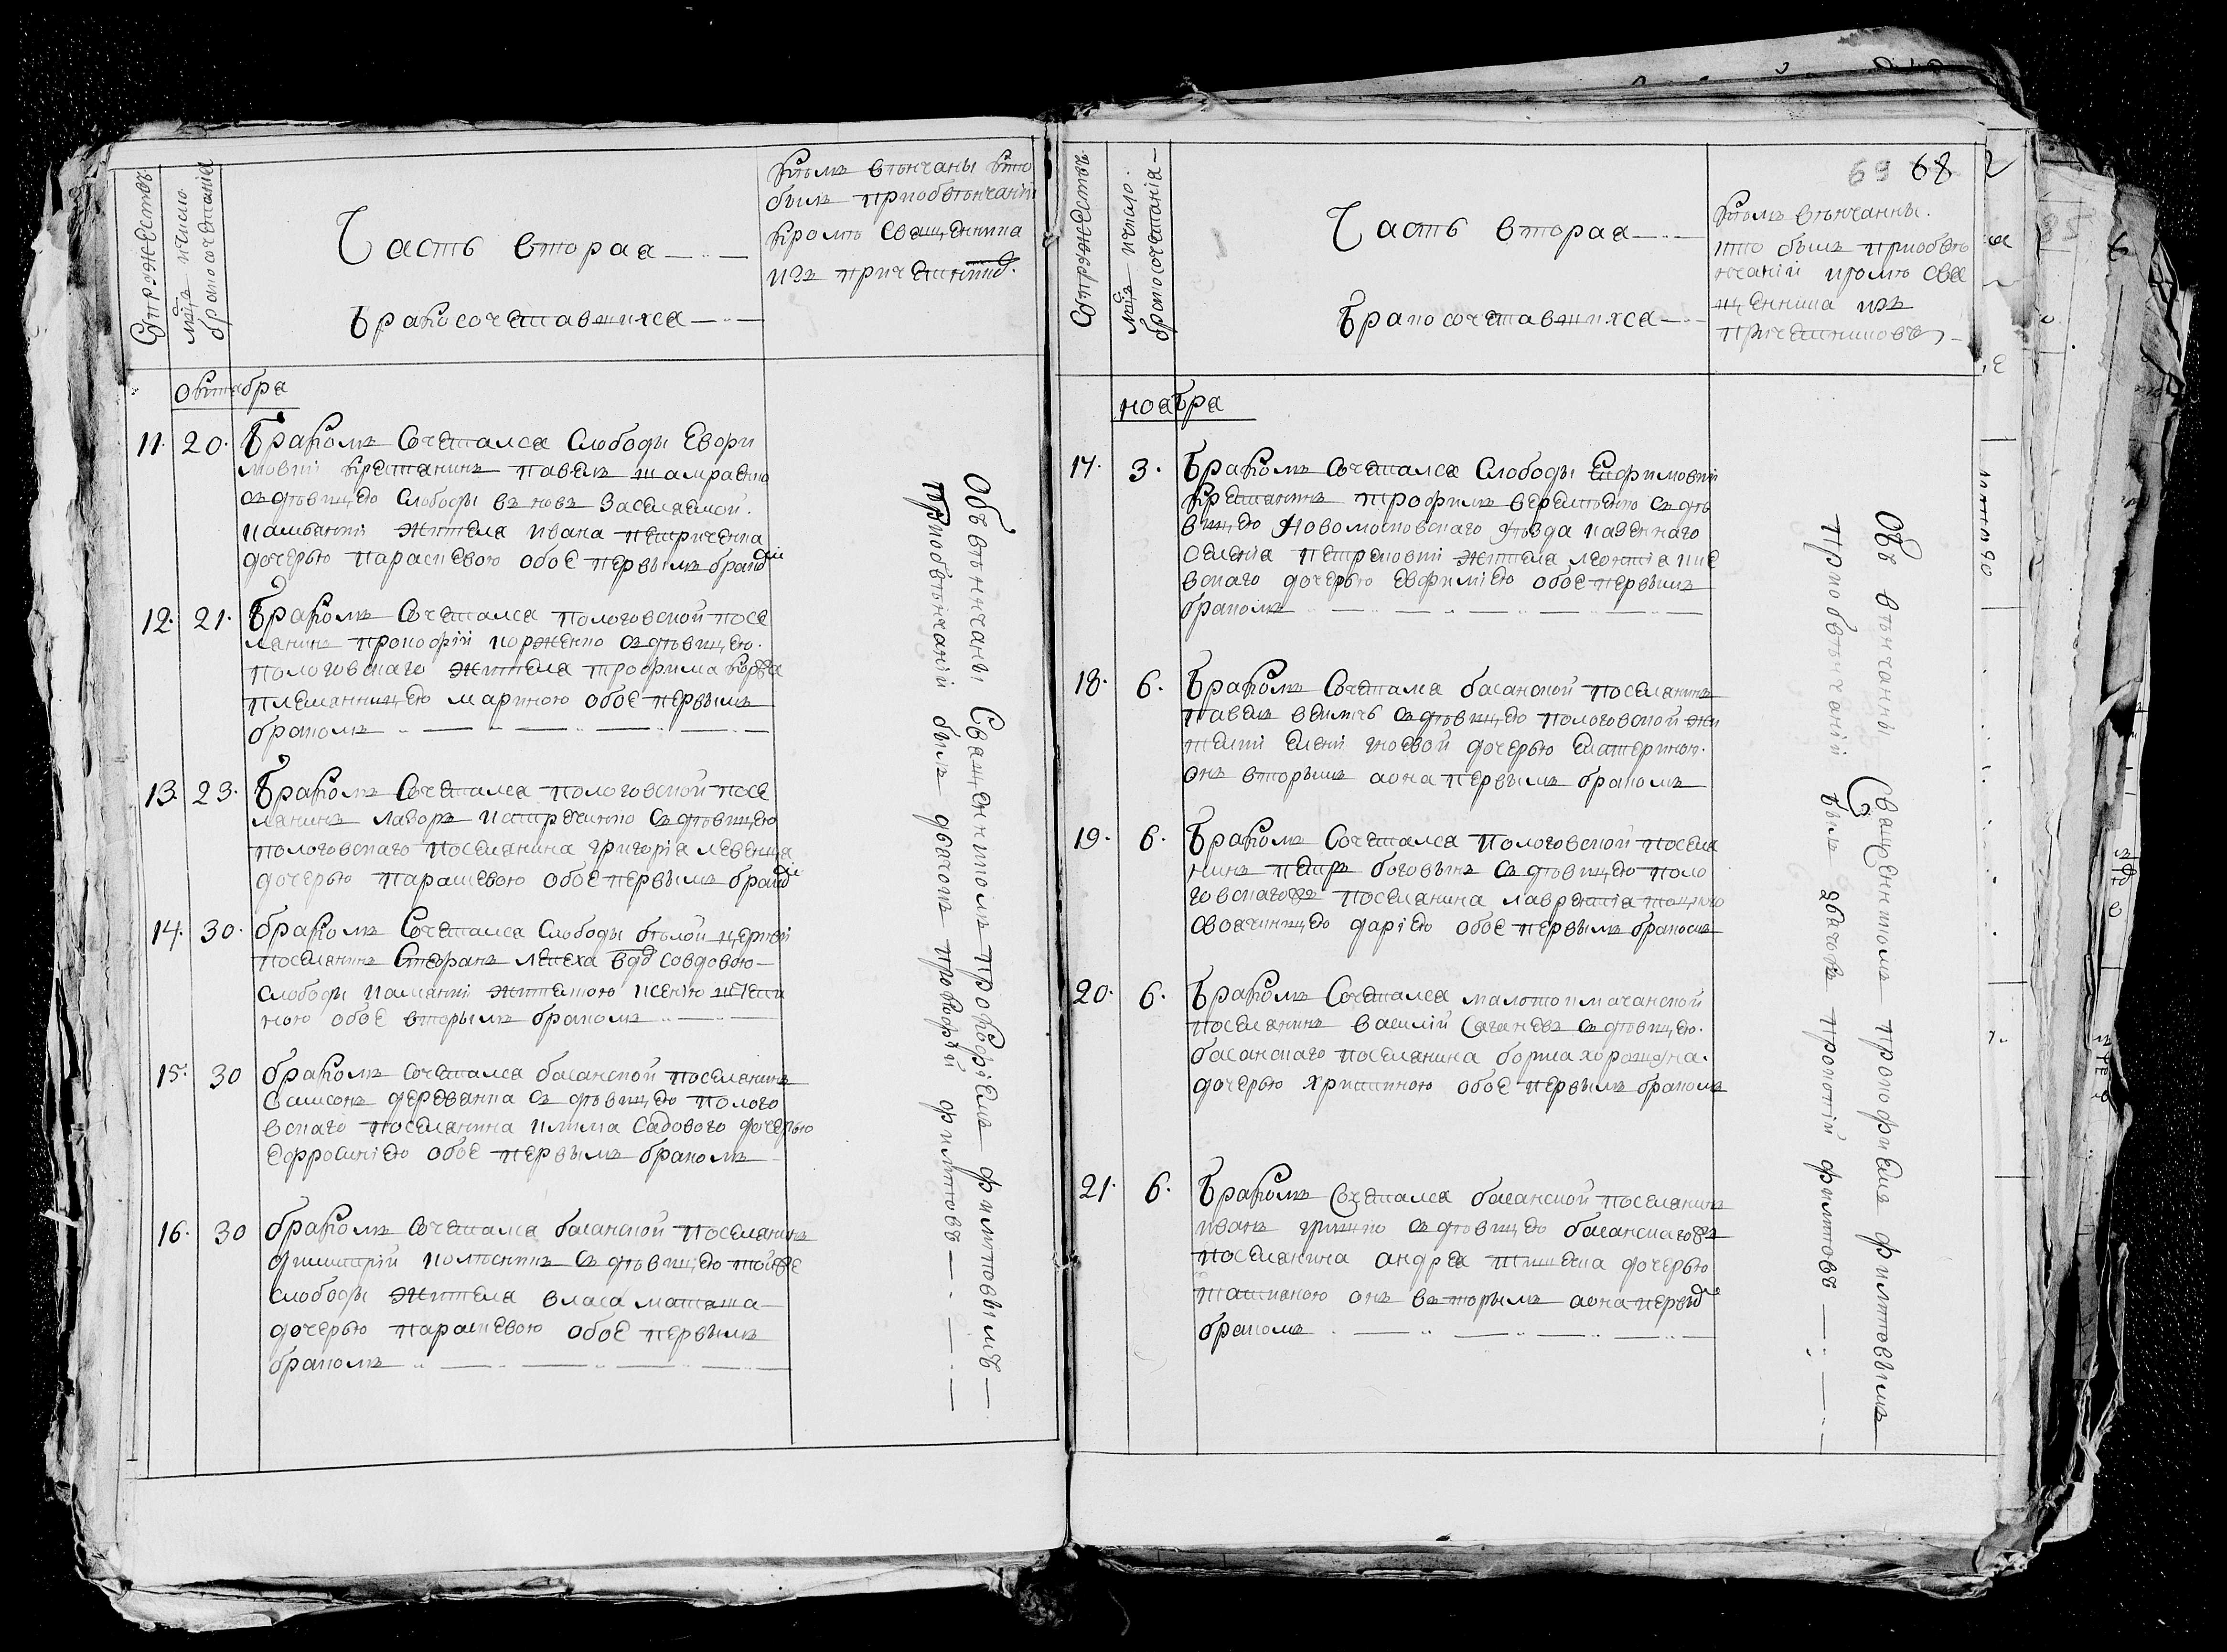 Супружествъ
мцъ и число
бракосочетанія
Часть вторая
Бракосочетавшихся
Кѣмъ вѣнчаны кто
былъ приобвѣнчаніи
кромѣ священника
изъ причетник
октября
11. 20. Бракомъ Сочетался Слободы Евфи
мовки крестянинъ павелъ шамраенко
съ дѣвицею слободы вновъ Заселяемой
камянки жителя ивана петриченка
дочерью параскевою обое первымъ брако
12. 21. Бракомъ Сочетался пологовской посе
лянинъ прокофій корженко съ дѣвицею
пологовскаго жителя трофима коржа
племянницею мариною обое первымъ
бракомъ
13. 23. Бракомъ Сочетался пологовской посе
лянинъ лазоръ съ дѣвицею
пологовскаго поселянина григорія левенца
дочерью параскевою обое первымъ брако
14. 30. бракомъ Сочетался Слободы бѣлой церкви
поселянинъ Стефанъ лепеха вдо совдовою
слободы камянки жителкою ксенію
ною обое вторымъ бракомъ
15. 30 бракомъ сочетался басанской поселянинъ
самсонъ деревянка съ дѣвицею полого
вскаго поселянина клима садового дочерью
ефросиніею обое первымъ бракомъ
16. 30 бракомъ сочетался басанской поселянинъ
димитрій съ дѣвицею тойже
слободы жителя власа
дочерью параскевою обое первымъ
бракомъ
Объ вѣнчаны Священникомъ прокофіемъ филиповымъ
приобвѣнчаніи былъ дьячокъ филиповъ
69 68
Супружествъ
мцъ и число
бракосочетанія
Часть вторая
Бракосочетавшихся
Кѣмъ вѣнчаны
кто былъ приобвѣ
нчаніи кромѣ свя
щенника изъ
причетниковъ
ноября
17. 3. Бракомъ Сочетался Слободы Ефимовки
крестянинъ трофимъ съ дѣ
вицею Новомосковскаго уѣзда казеннаго
селенія петриковки жителя леонтія кіе
вскаго дочерью евфиміею обое первымъ
бракомъ
18. 6. Бракомъ Сочетался басанской поселянинъ
павелъ съ дѣвицею пологовской жи
телки дочерью екатериною
онъ вторымъ аона первымъ бракомъ
19. 6. Бракомъ Сочетался пологовской поселя
нинъ петръ боговынъ съ дѣвицею поло
говскагожъ поселянина лаврентія
своячиницею даріею обое первымъ бракомъ
20. 6. Бракомъ Сочетался малотокмачанской
поселянинъ василій съ дѣвицею
басанскаго поселянина бориса хорошуна
дочерью христиною обое первымъ бракомъ
21. 6. Бракомъ Сочетался басанской поселянинъ
иванъ гришко съ дѣвицею басанскагожъ
поселянина андрея дочерью
татияною онъ вторымъ аона первы
бракомъ
Объ вѣнчаны Священникомъ прокофиемъ филиповымъ
приобвѣнчаніи былъ дьячокъ прокопій филиповъ